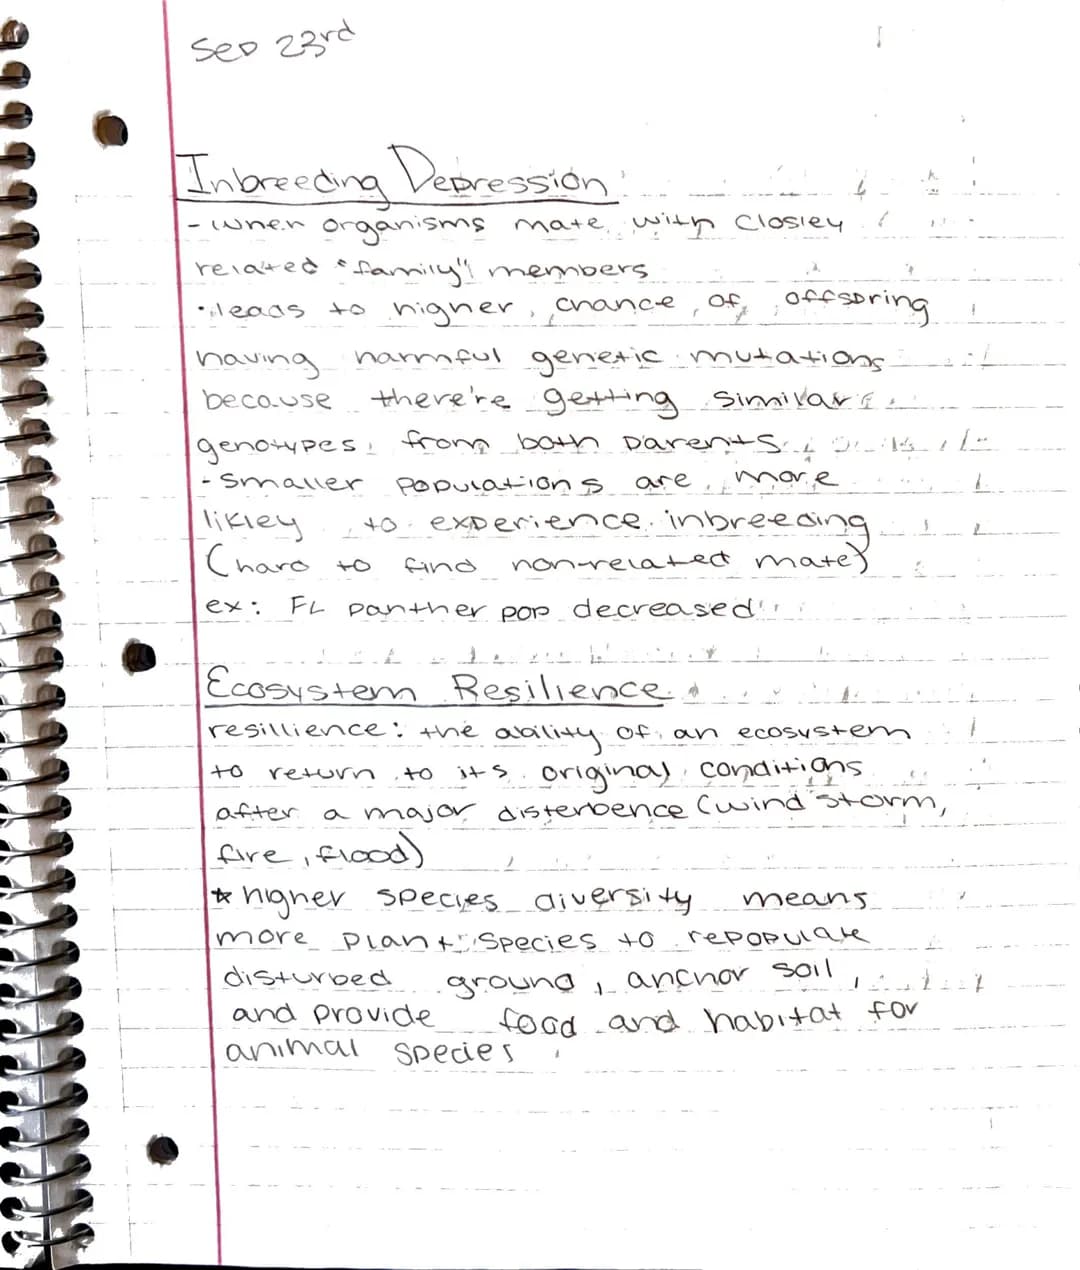 Sep 23rd
Inbreeding Depression
- when organisms mate with closley
related "family" members
• leads to higher chance of offspring
having harmful genetic mutations
because there're getting similar
genotypes from both parents
- smaller populations are more
likley to experience inbreeding
(hard to find non-related mate)
ex: FL panther pop decreased
Ecosystem Resilience
resillience: the ability of an ecosystem
to return to its original conditions
after a major disterbence (wind storm,
fire, flood)
* higher species diversity means
more plant species to repopulate
disturbed ground, anchor soil,
and provide food and habitat for
animal species